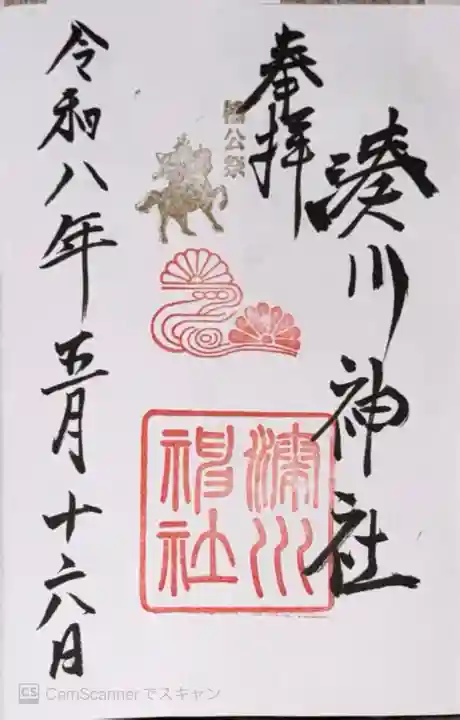 奉拝
湊川神社
楠公祭
湊川
神社
令和八年五月十六日
CS CamScannerでスキャン